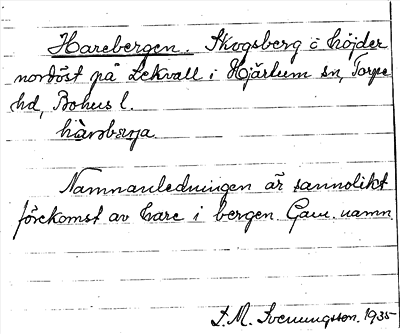 Harebergen. Skogsberg o höjder
nordöst på Lekvall i Hjärtum sn, Torpe
hd, Bohus l.
Namnanledningen är sannolikt
förekomst av hare i bergen. Gam. namn
S. M. Svenungsson. 1935